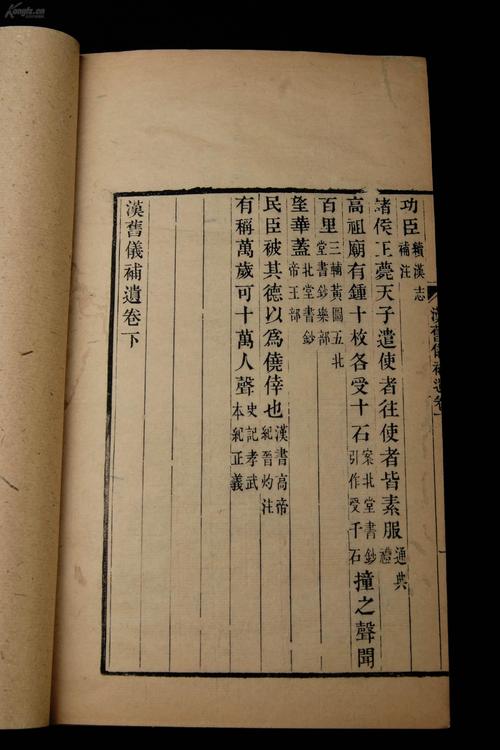 Kongfz.cn
漢舊儀補遺卷
功臣續漢志補注
諸侯王薨天子遣使者往使者皆素服通典禮
高祖廟有鍾十枚各受十石案北堂書鈔引作受千石撞之聲聞
百里三輔黃圖五北堂書鈔樂部
望華蓋北堂書鈔帝王部
民臣被其德以爲僥倖也漢書高帝紀晉灼注
有稱萬歲可十萬人聲史記孝武本紀正義
漢舊儀補遺卷下